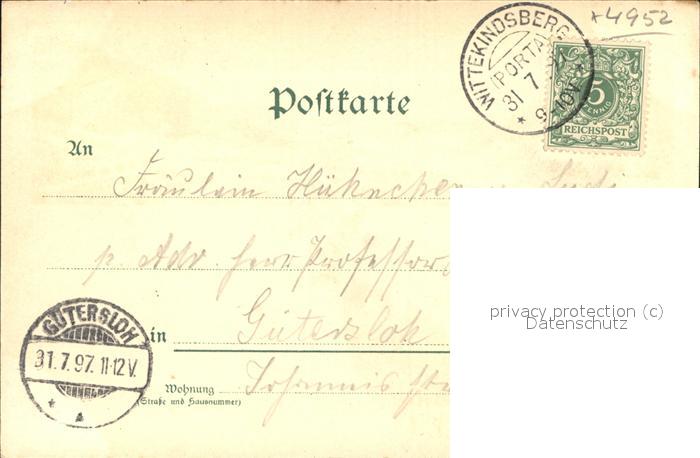 +4952
WITTEKINDSBERG
(PORTA)
31 7 97
9-10V
5
PFENNIG
REICHSPOST
Postkarte
An
Fräulein
p. Adr. Herr Professor
GÜTERSLOH
31.7.97. 11-12V.
in Gütersloh
privacy protection (c)
Datenschutz
Wohnung Johannis
(Straße und Hausnummer)